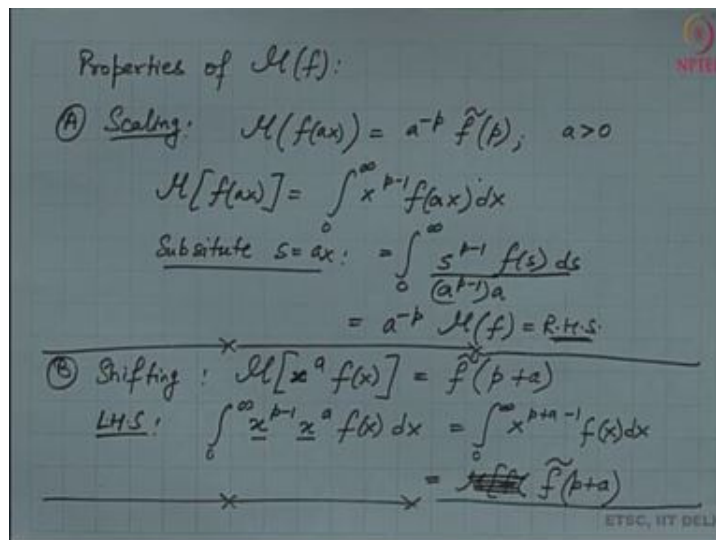 Properties of ℳ(f):
NPTEL
Ⓐ Scaling: ℳ(f(ax)) = a^{-p} f̃(p); a>0
ℳ[f(ax)] = ∫_0^∞ x^{p-1} f(ax) dx
Subsitute s=ax: = ∫_0^∞ s^{p-1} f(s) ds / (a^{p-1})a
= a^{-p} ℳ(f) = R.H.S.
Ⓑ Shifting: ℳ[x^a f(x)] = f̃(p+a)
LHS: ∫_0^∞ x^{p-1} x^a f(x) dx = ∫_0^∞ x^{p+a-1} f(x) dx
= f̃(p+a)
ETSC, IIT DELHI